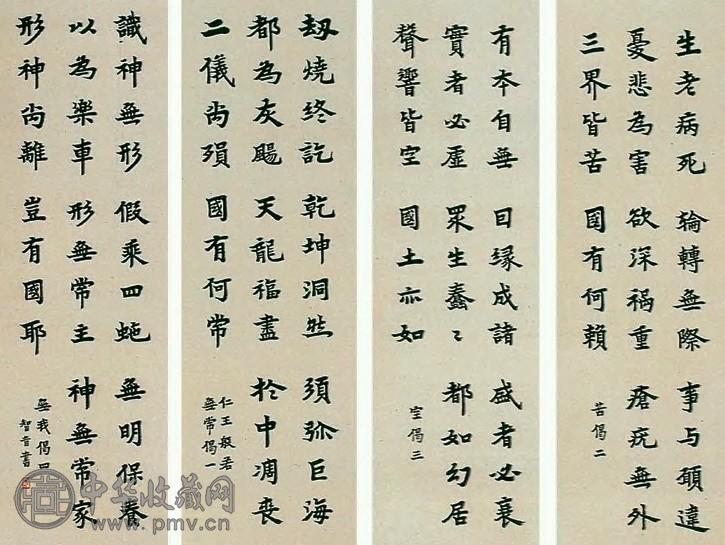 生老病死輪轉無際事与願違
憂悲為害欲深禍重瘡疣無外
三界皆苦國有何賴
苦偈二
有本自無因緣成諸盛者必衰
實者必虛眾生蠢々都如幻居
聲響皆空國土亦如
空偈三
劫燒終訖乾坤洞然須弥巨海
都為灰颺天龍福盡於中凋喪
二儀尚殞國有何常
仁王般若
無常偈一
識神無形假乘四虵無明保養
以為樂車形無常主神無常家
形神尚離豈有國耶
無我偈四
智音書
中华收藏网
www.pmv.cn